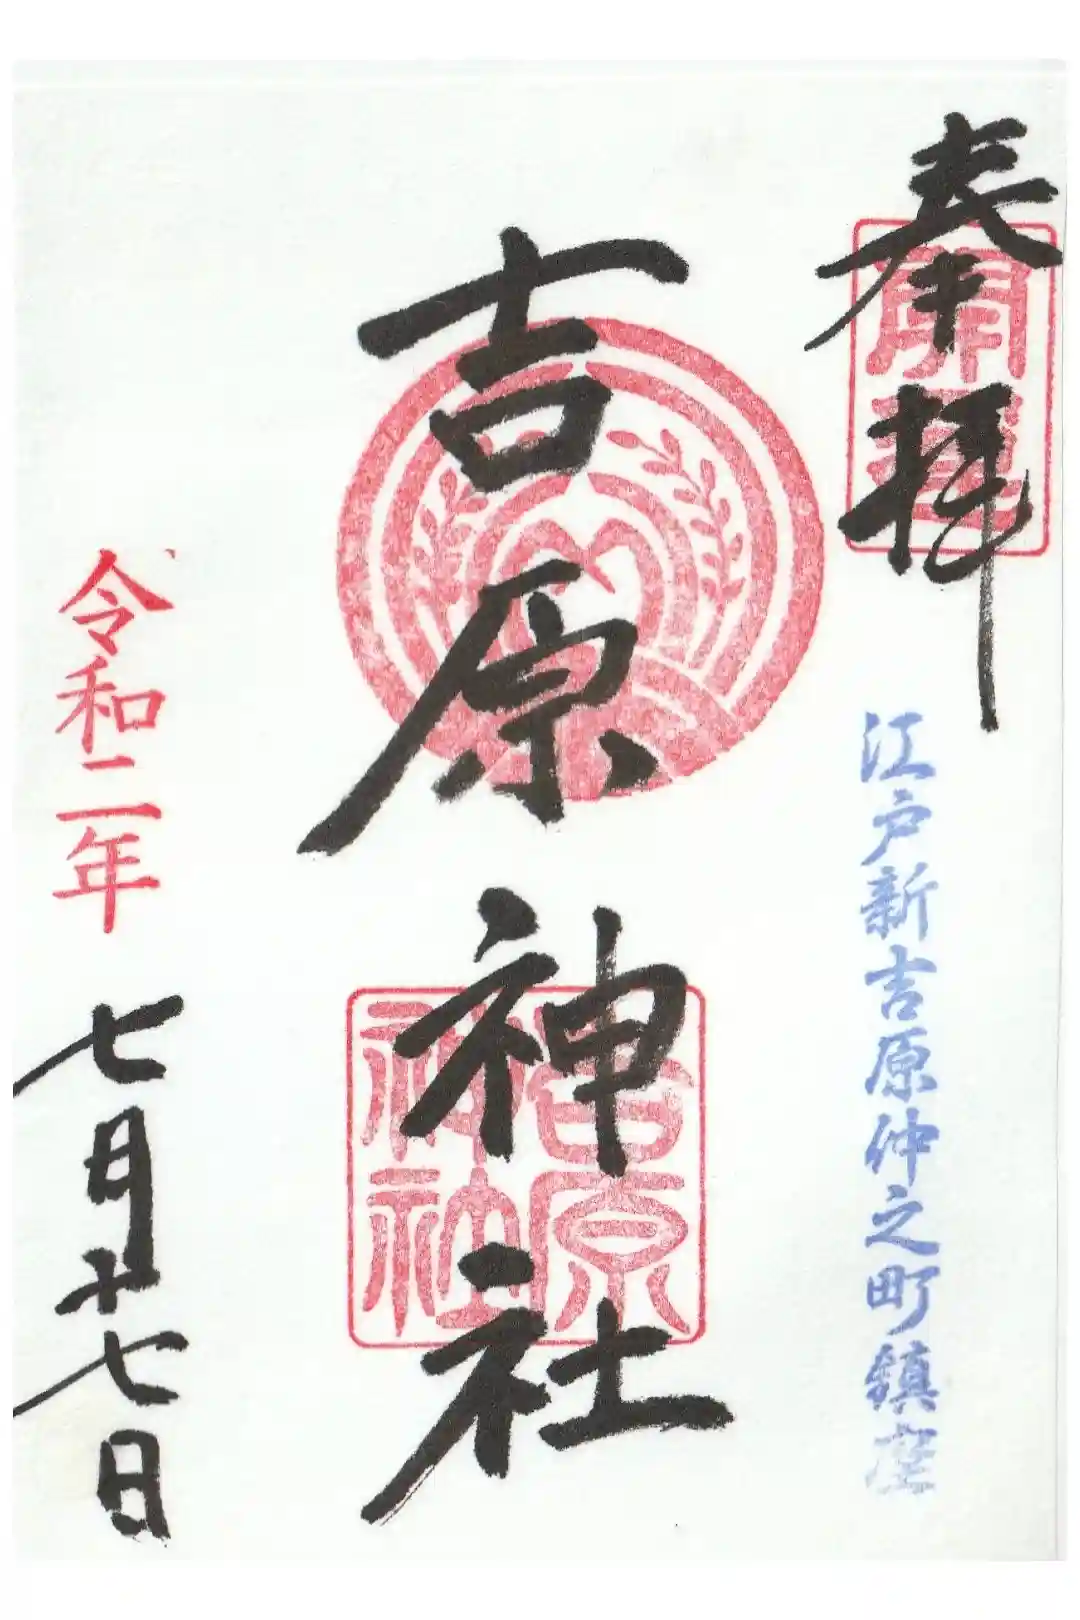 奉拝
開運
江戸新吉原仲之町鎮座
吉原神社
吉原
神社
令和二年
七月十七日